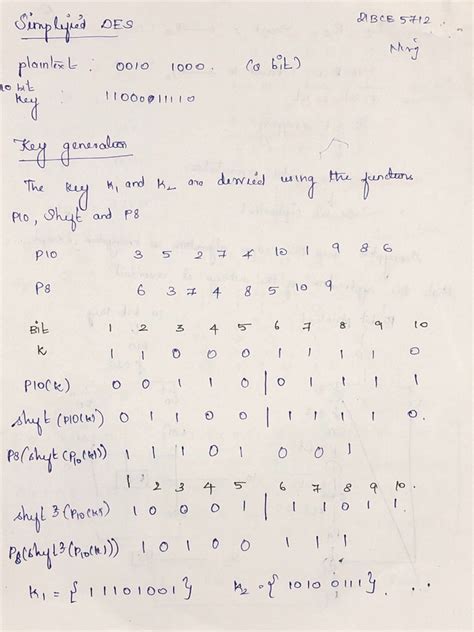 Simplified DES
21BCE5712
plaintext : 0010 1000. (8 bit)
10 bit
key : 1100011110
Key generation
The key K1 and K2 are derived using the functions
P10, Shift and P8
P10 3 5 2 7 4 10 1 9 8 6
P8 6 3 7 4 8 5 10 9
Bit 1 2 3 4 5 6 7 8 9 10
K 1 1 0 0 0 1 1 1 1 0
P10(K) 0 0 1 1 0 | 0 1 1 1 1
Shift (P10(K)) 0 1 1 0 0 | 1 1 1 1 0.
P8(shift(P10(K))) 1 1 1 0 1 0 0 1
1 2 3 4 5 6 7 8 9 10.
shift 3(P10(K)) 1 0 0 0 1 | 1 1 0 1 1.
P8(shift3(P10(K))) 1 0 1 0 0 1 1 1
K1 = { 11101001 } K2 = { 1010 0111 } . ...